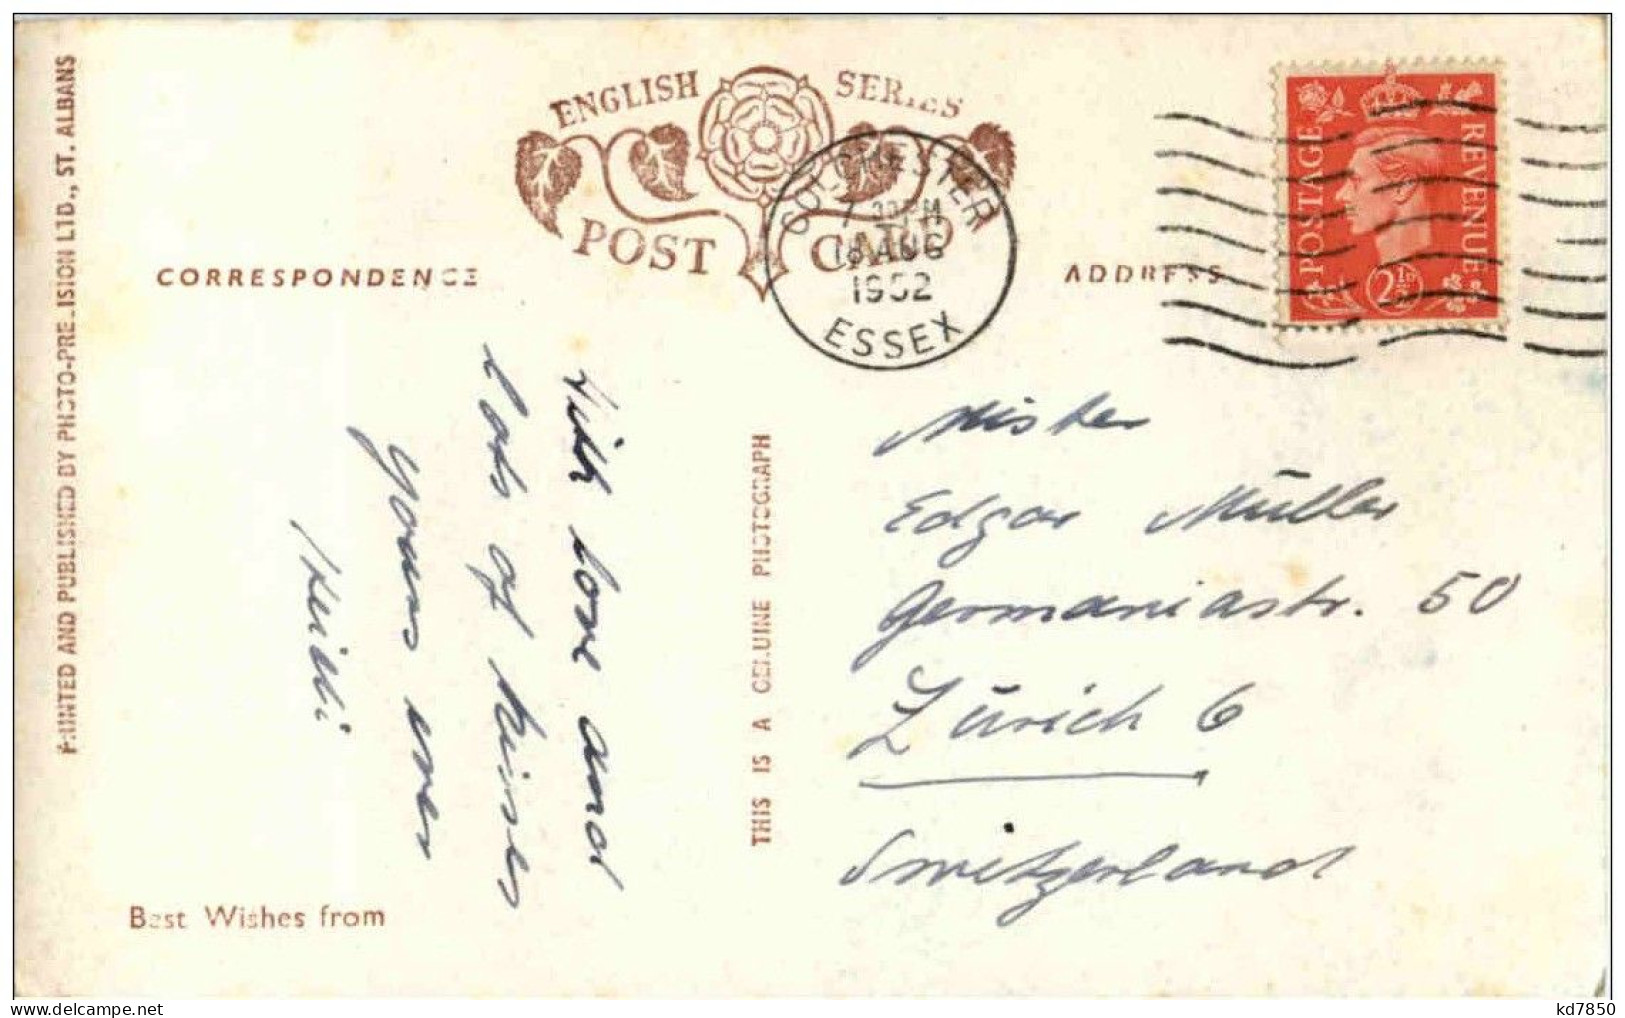 PRINTED AND PUBLISHED BY PHOTO-PRECISION LTD., ST. ALBANS
ENGLISH SERIES
POST CARD
CORRESPONDENCE
ADDRESS
COLCHESTER
7 30 PM
18 AUG
1952
ESSEX
POSTAGE
REVENUE
2½D
With love and
Lots of kisses
yours ever
Heidi
Best Wishes from
THIS IS A GENUINE PHOTOGRAPH
Mister
Edgar Müller
Germaniastr. 50
Zürich 6
Switzerland
kd7850